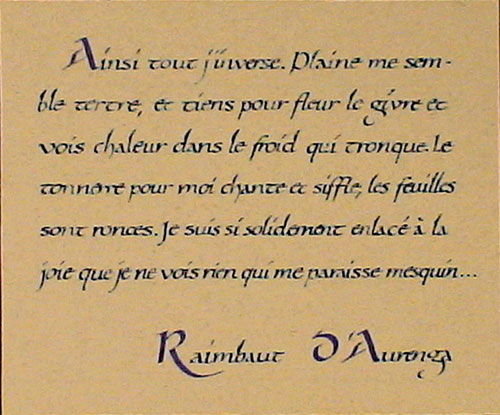 Ainsi tout j'inverse. Plaine me sem-
ble tertre, et tiens pour fleur le givre et
vois chaleur dans le froid qui tronque. Le
tonnerre pour moi chante et siffle, les feuilles
sont ronces. Je suis si solidement enlacé à la
joie que je ne vois rien qui me paraisse mesquin...
Raimbaut D'Aurenga